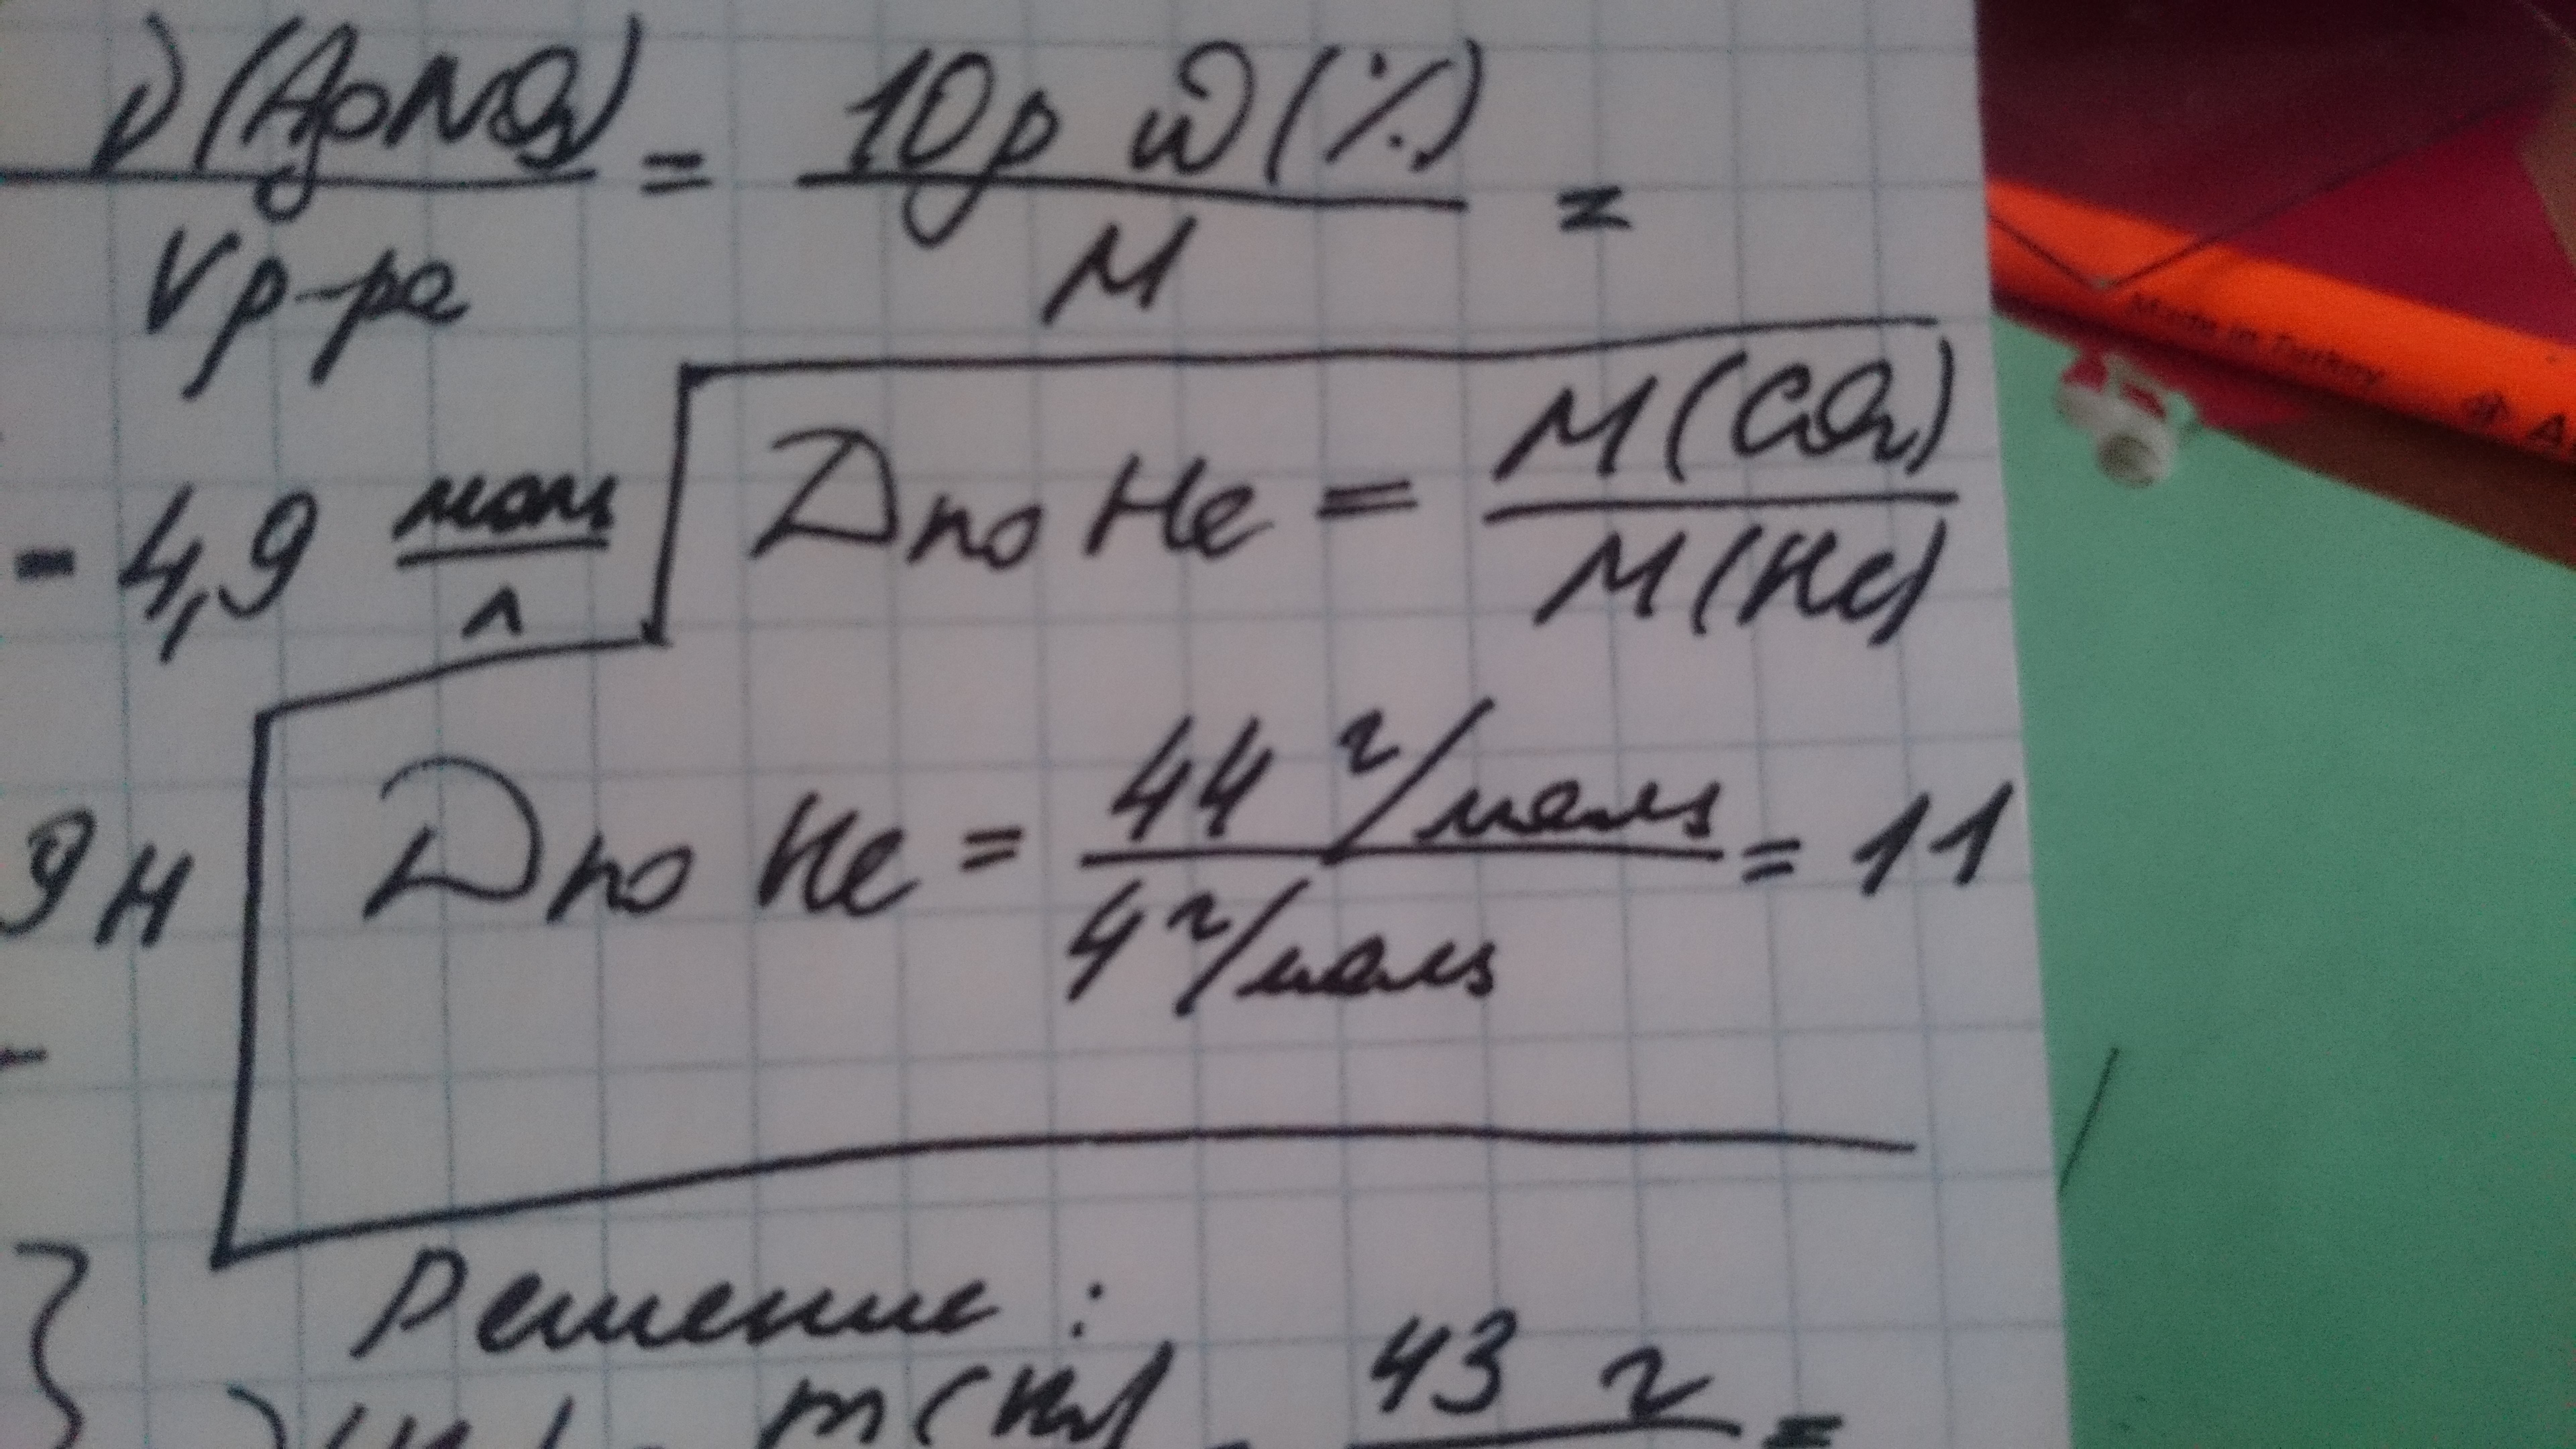 ν(AgNO3) / Vр-ра = 10ρ ω(%) / M =
- 4,9 моль / л
D по He = M(CO2) / M(He)
9 н
D по He = 44 г/моль / 4 г/моль = 11
Решение:
43 г =
Made in Turkey